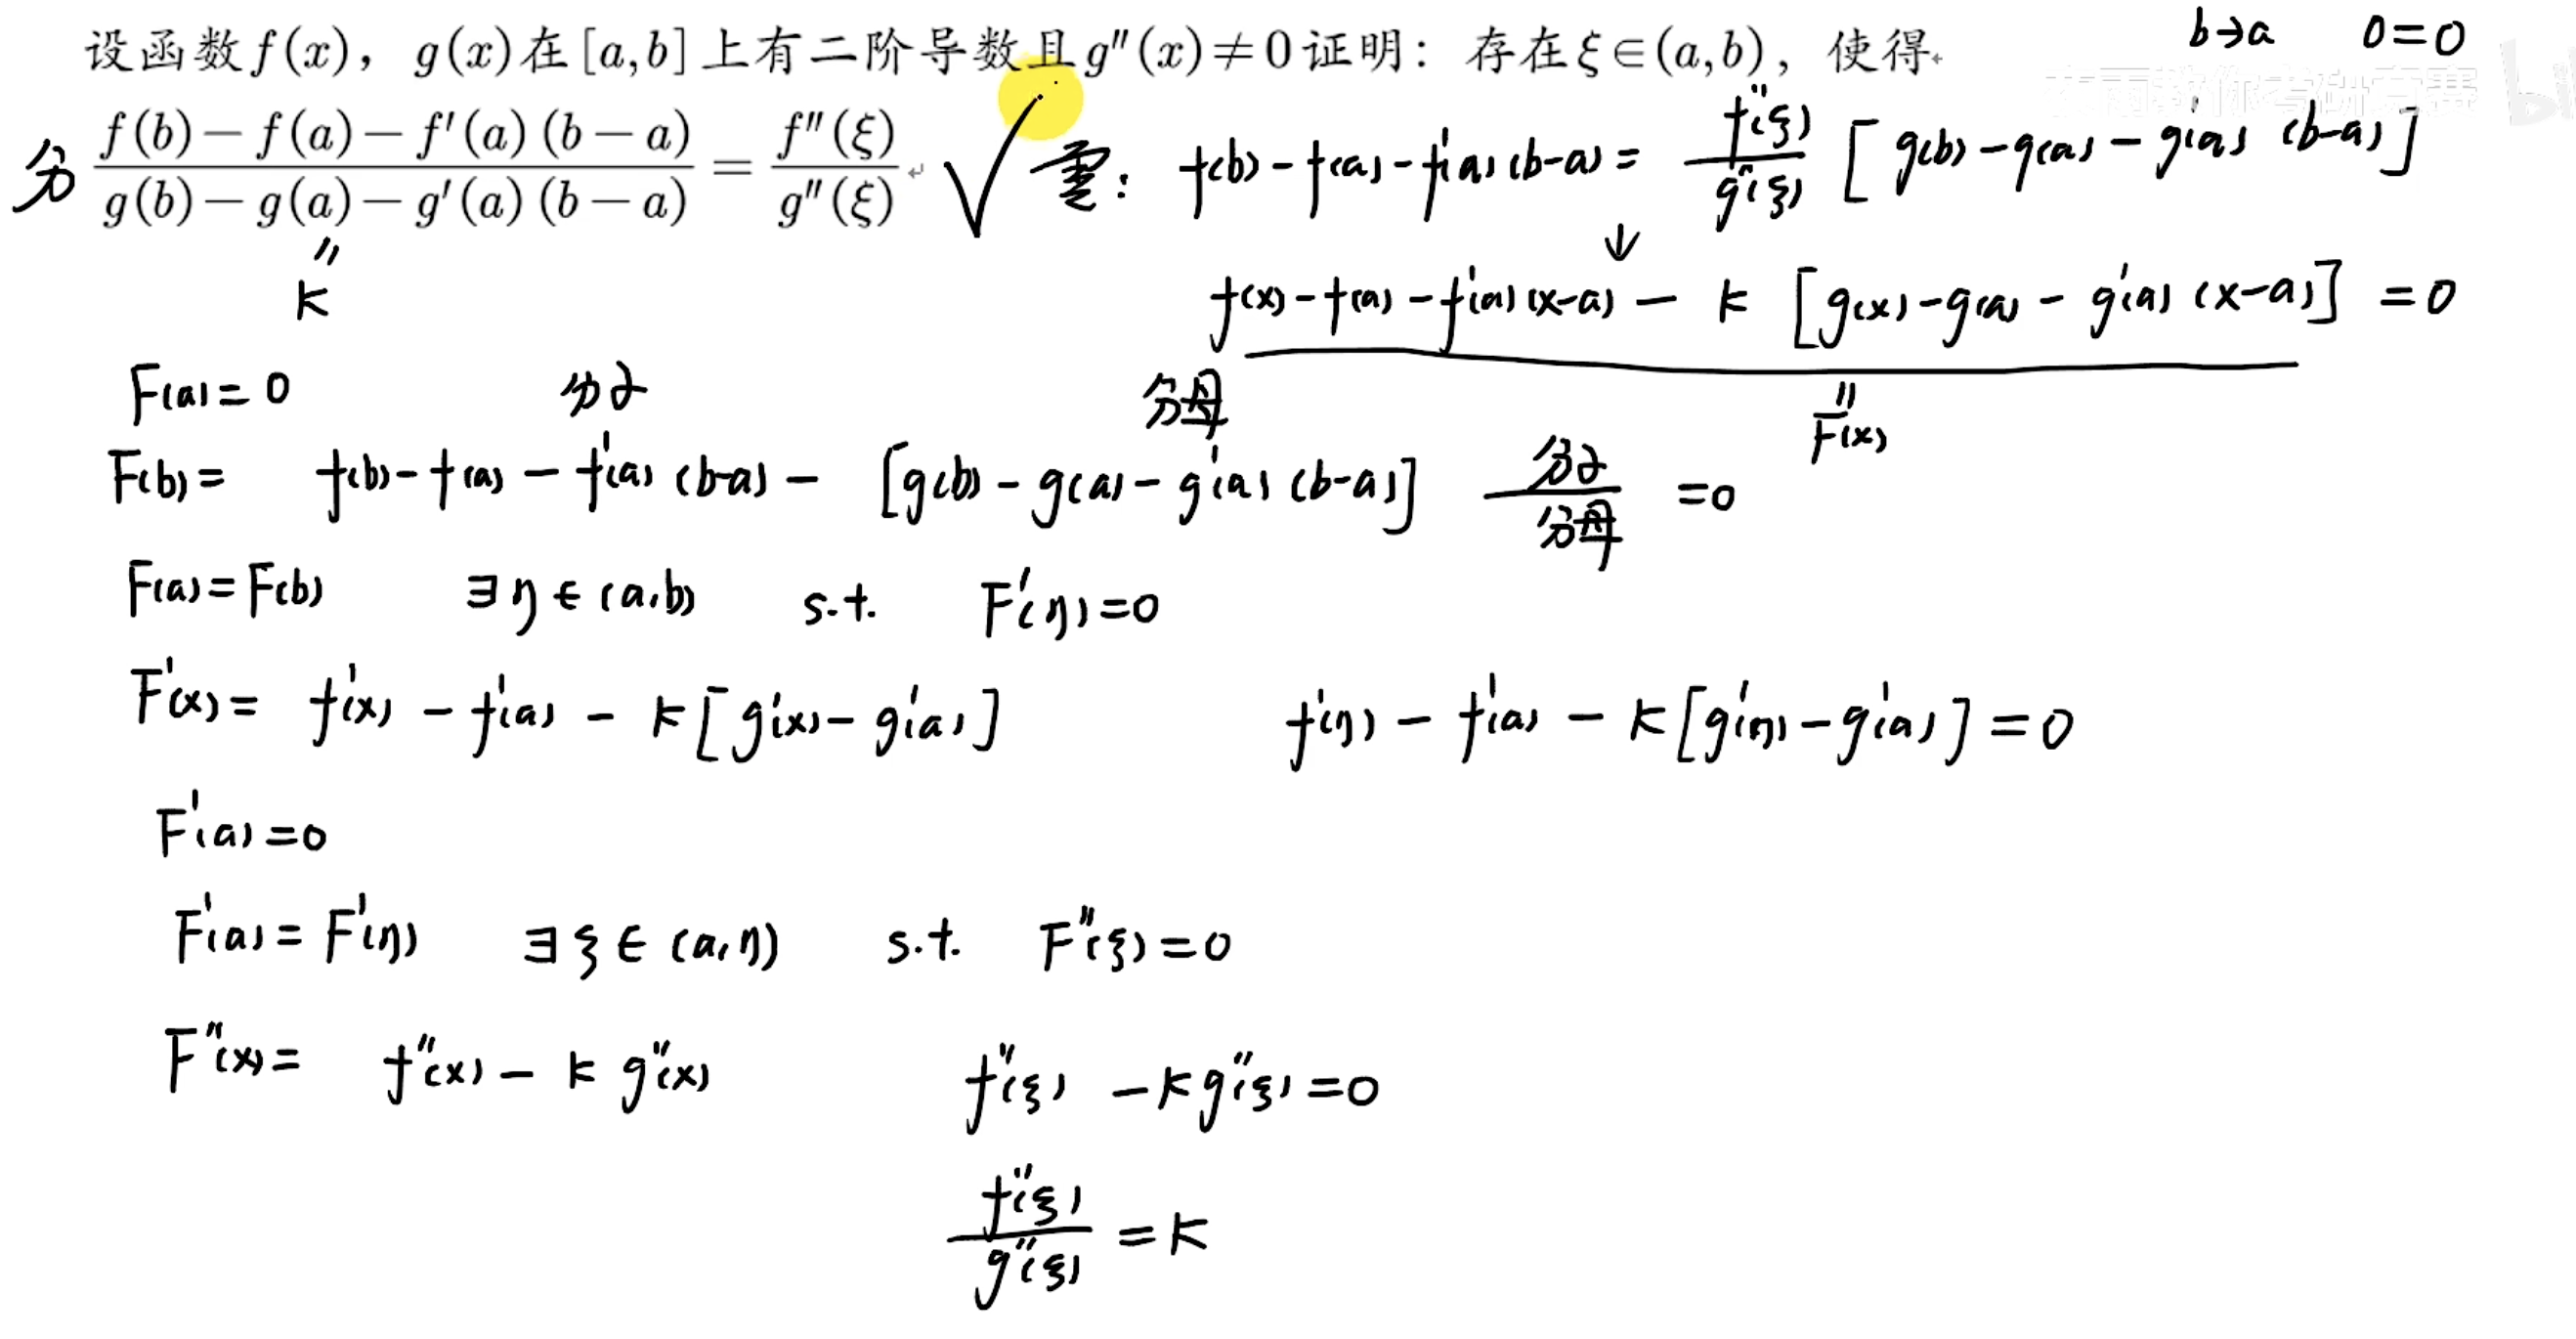 设函数f(x)，g(x)在[a,b]上有二阶导数且g″(x)≠0证明：存在ξ∈(a,b)，使得
b→a 0=0
分 (f(b)−f(a)−f′(a)(b−a))/(g(b)−g(a)−g′(a)(b−a)) = f″(ξ)/g″(ξ) √
需: f(b)-f(a)-f′(a)(b-a)= f″(ξ)/g″(ξ) [g(b)-g(a)-g′(a)(b-a)]
〃
K
↓
f(x)-f(a)-f′(a)(x-a) - K [g(x)-g(a)-g′(a)(x-a)] =0
〃
F(x)
F(a)=0 分子 分母
F(b)= f(b)-f(a)-f′(a)(b-a)- [g(b)-g(a)-g′(a)(b-a)] 分子/分母 =0
F(a)=F(b) ∃η∈(a,b) s.t. F′(η)=0
F′(x)= f′(x)-f′(a)-K[g′(x)-g′(a)] f′(η)-f′(a)-K[g′(η)-g′(a)]=0
F′(a)=0
F′(a)=F′(η) ∃ξ∈(a,η) s.t. F″(ξ)=0
F″(x)= f″(x)-K g″(x) f″(ξ)-Kg″(ξ)=0
f″(ξ)/g″(ξ) =K